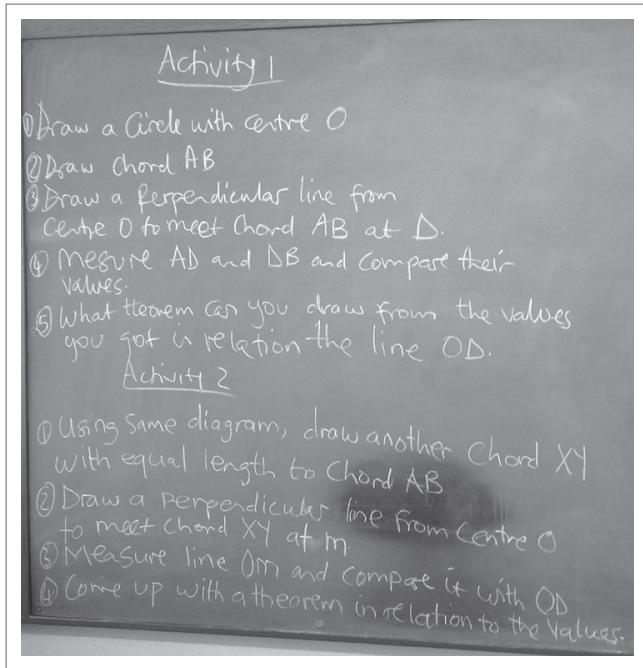 Activity 1
① Draw a Circle with centre O
② Draw Chord AB
③ Draw a Perpendicular line from
Centre O to meet Chord AB at D.
④ Mesure AD and DB and Compare their
values.
⑤ What tteorem can you draw from the values
you got in relation the line OD.
Activity 2
① Using Same diagram, draw another Chord XY
with equal length to Chord AB
② Draw a perpendicular line from Centre O
to meet Chord XY at m.
③ Measure line Om and compare it with OD
④ Come up with a theorem in relation to the values.